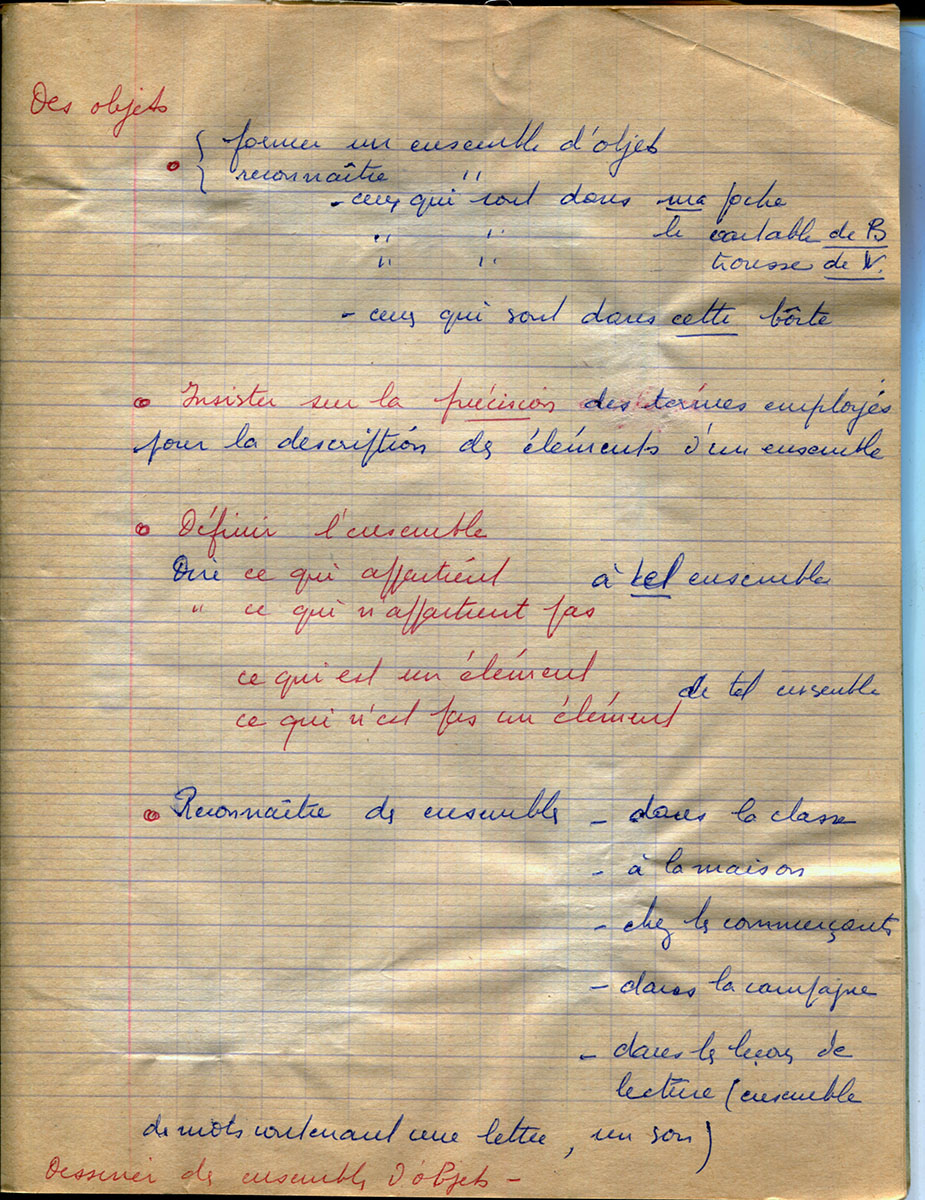 Des objets
former un ensemble d'objets
reconnaître "
- ceux qui sont dans ma poche
" " le cartable de B
" " trousse de V.
- ceux qui sont dans cette boîte
Insister sur la précision des termes employés
pour la description des éléments d'un ensemble
Définir l'ensemble
Dire ce qui appartient à tel ensemble
" ce qui n'appartient pas
ce qui est un élément
de tel ensemble
ce qui n'est pas un élément
Reconnaître des ensembles - dans la classe
- à la maison
- chez les commerçants
- dans la campagne
- dans les leçons de
lecture (ensemble
de mots contenant une lettre, un son)
Dessiner des ensembles d'objets -